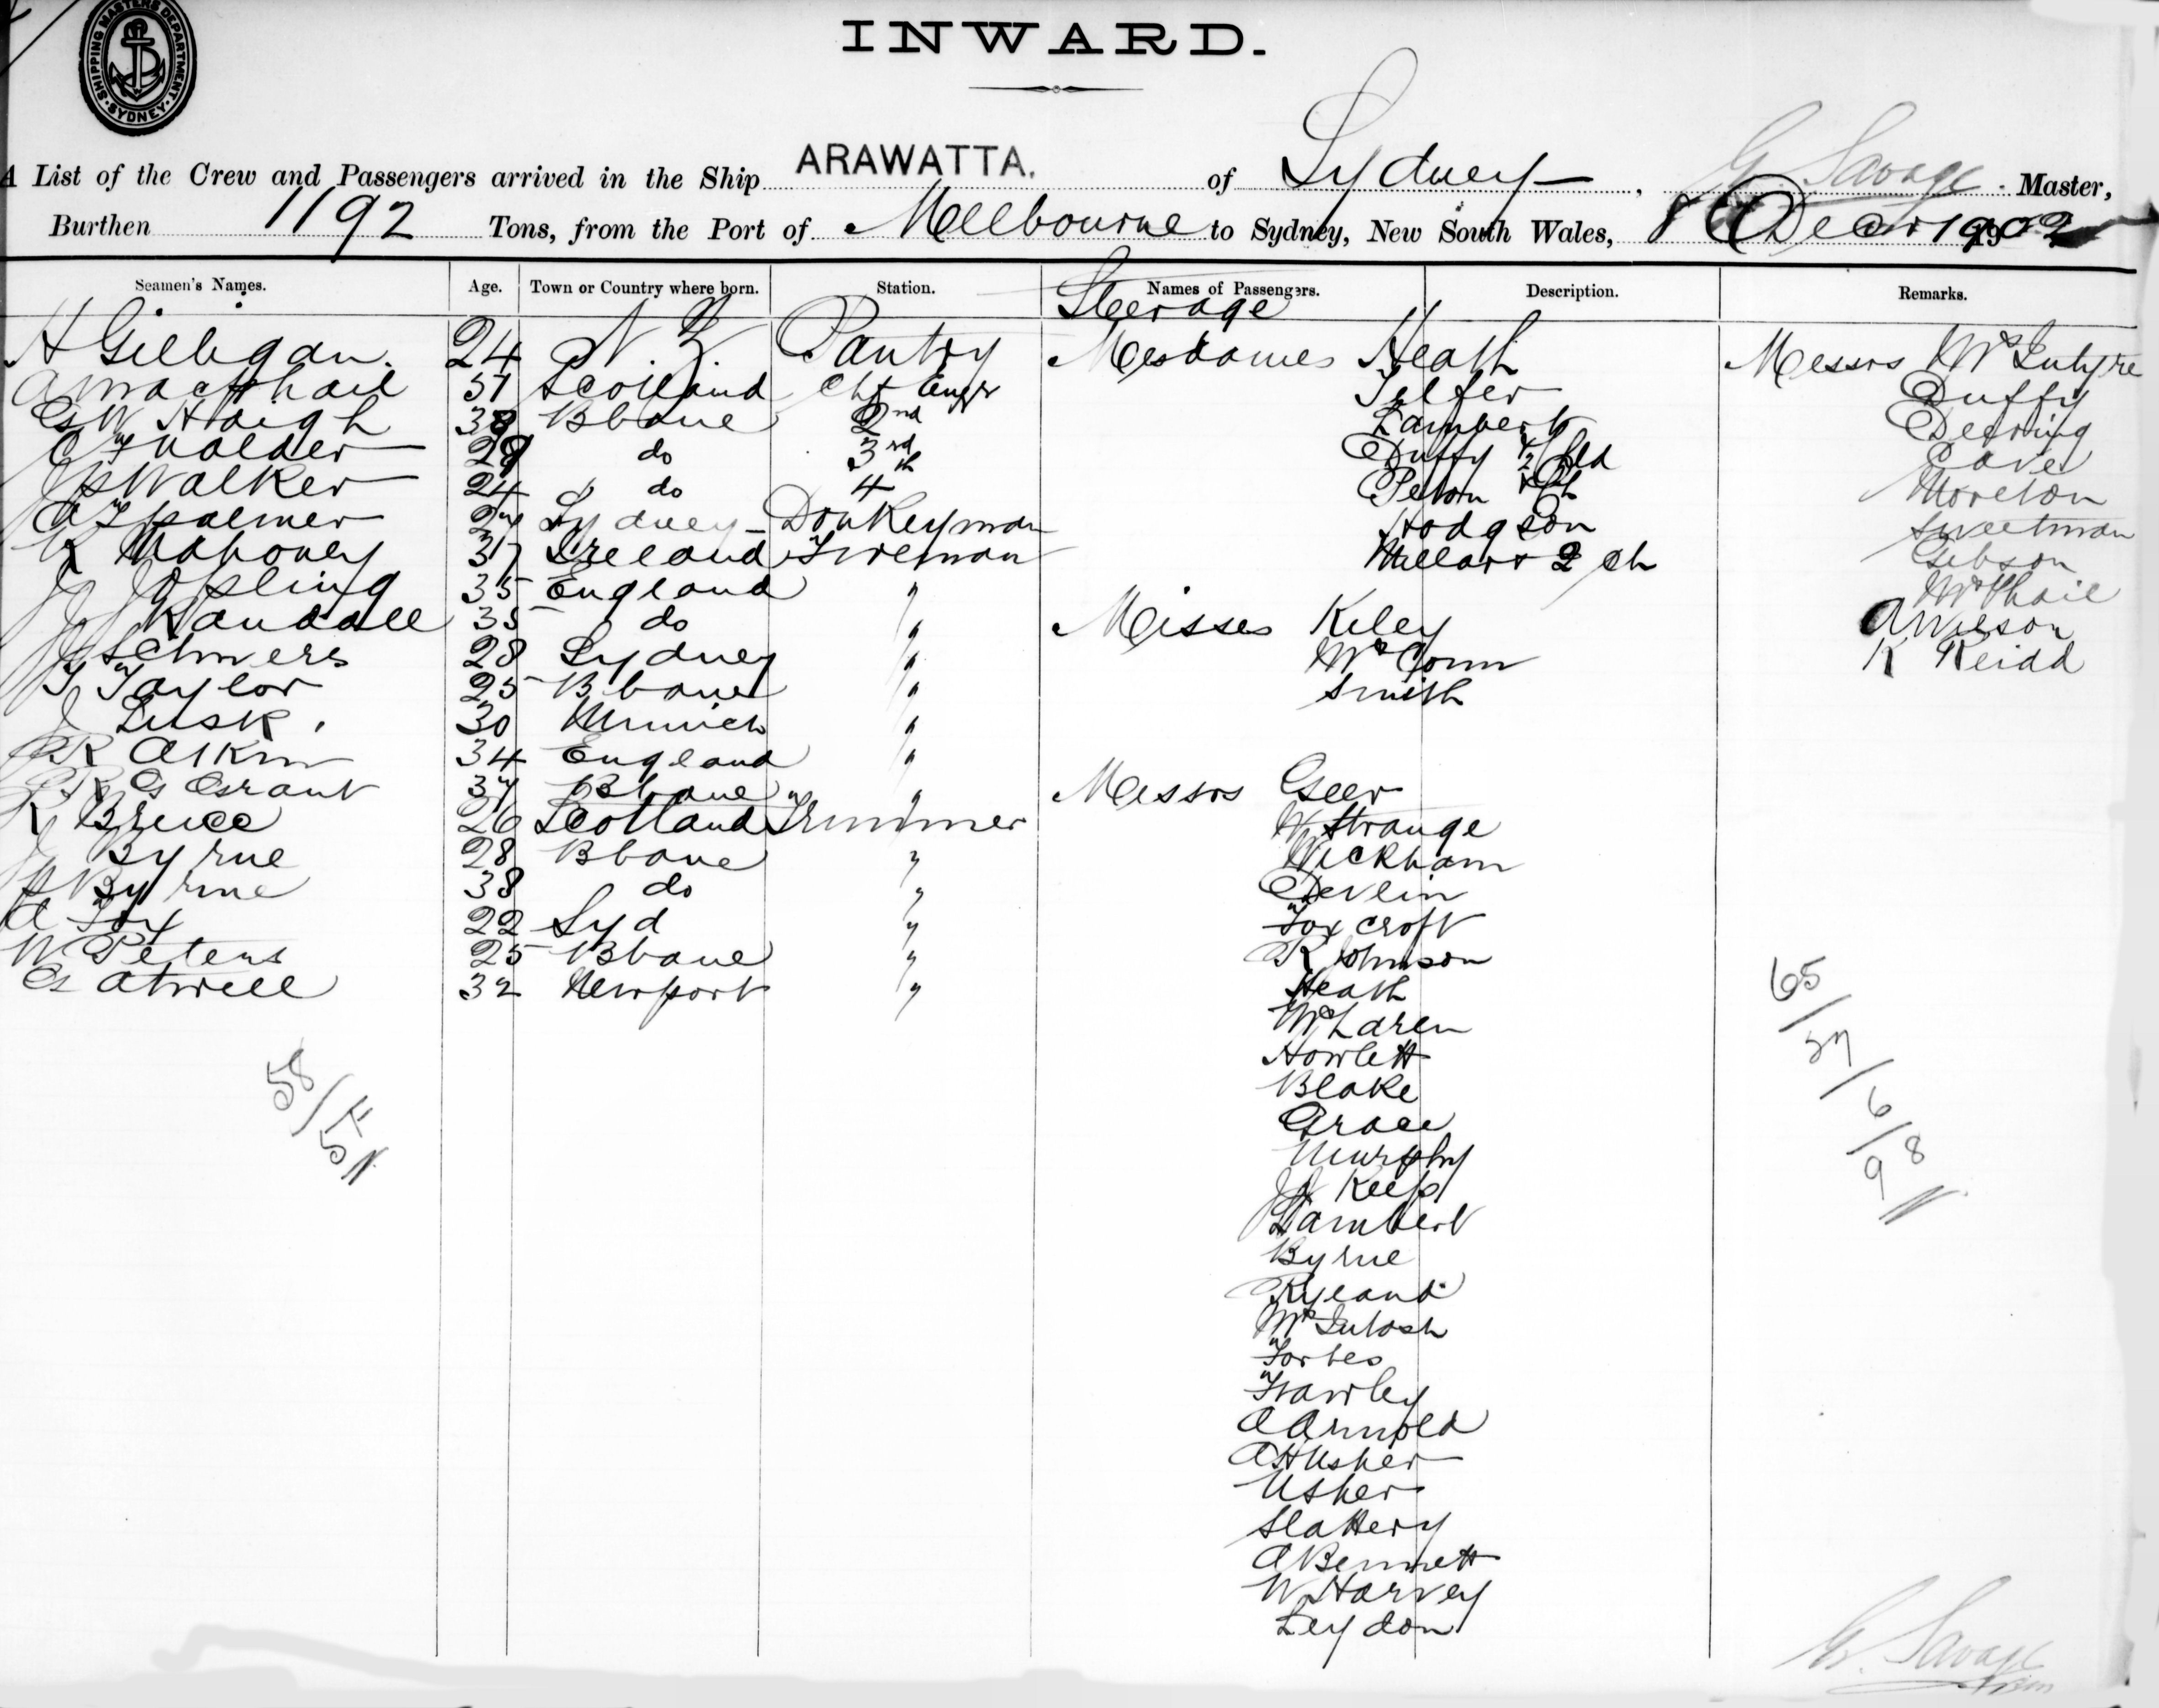 SHIPPING MASTERS DEPARTMENT · SYDNEY ·
INWARD.
A List of the Crew and Passengers arrived in the Ship ARAWATTA. of Sydney, G. Savage. Master,
Burthen 1192 Tons, from the Port of Melbourne to Sydney, New South Wales, 8 Decr 1902
Seamen's Names. Age. Town or Country where born. Station. Names of Passengers. Description. Remarks.
Steerage
H Gilligan. 24 N.Z. Pantry Mesdames Heath Messrs McIntyre
A MacPhail 51 Scotland Chf Engr Telfer Duffy
G W Haigh 38 Bbane 2nd Lambert Deering
C F Nalder 28 do 3rd Duffy 1/2 Cave
Walker 24 do 4th Peton Moreton
Palmer 27 Sydney Donkeyman Hodgson Sweetman
R Mahoney 37 Ireland Fireman Millar & 2 ch Gibson
J Jopling 35 England " McPhail
J Randall 35 do " Misses Kiley A Wilson
28 Sydney " McConn R Reidd
T Taylor 25 Bbane " Smith
J Lusk. 30 Munich "
R Atkin 34 England "
R G Grant 37 Bbane " Messrs Geer
R Bruce 26 Scotland Trimmer W Strange
J Byrne 28 Bbane " Wickham
Byrne 38 do " Devlin
A Fox 22 Syd " Foxcroft
W Peters 25 Bbane " R Johnson
G Atwell 32 Newport " Heath
McLaren
Howlett
Blake
Grace
Murphy
J Keep
Lambert
Byrne
Ryland
McIntosh
Forbes
Frawley
A Arnold
A H Usher
Usher
Slattery
A Bennett
W Harvey
Leydon
58/
65/
57/
6/
8
9
G. Savage